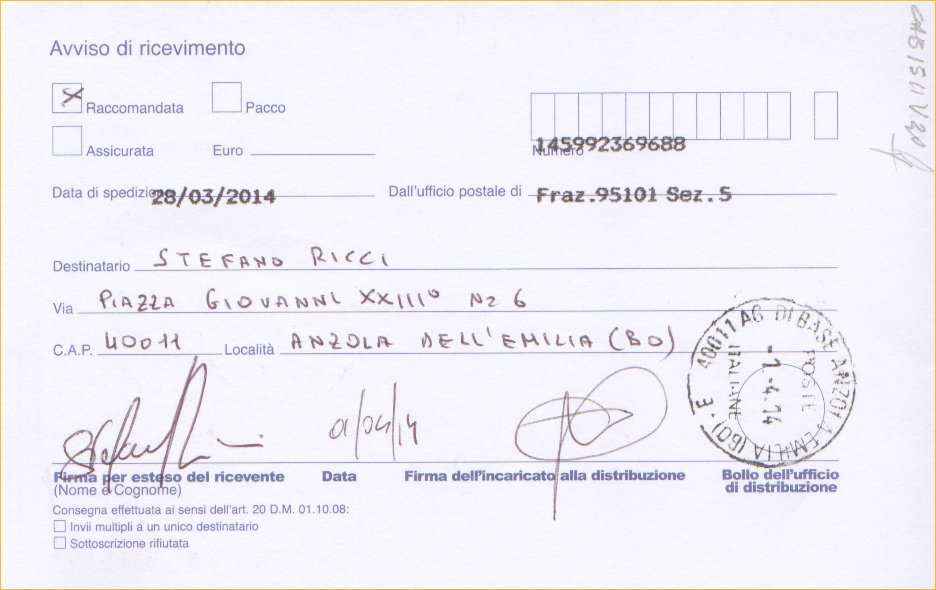 Avviso di ricevimento
Raccomandata Pacco
Assicurata Euro
145992369688
Numero
Data di spedizione 28/03/2014 Dall'ufficio postale di Fraz.95101 Sez.S
Destinatario STEFANO RICCI
Via PIAZZA GIOVANNI XXIII° N2 6
C.A.P. 40011 Località ANZOLA DELL'EMILIA (BO)
40011 AG DI BASE ANZOLA EMILIA (BO)
POSTE
-1.-4.14
ITALIANE
01/04/14
Firma per esteso del ricevente Data Firma dell'incaricato alla distribuzione Bollo dell'ufficio
(Nome e Cognome) di distribuzione
Consegna effettuata ai sensi dell'art. 20 D.M. 01.10.08:
Invii multipli a un unico destinatario
Sottoscrizione rifiutata